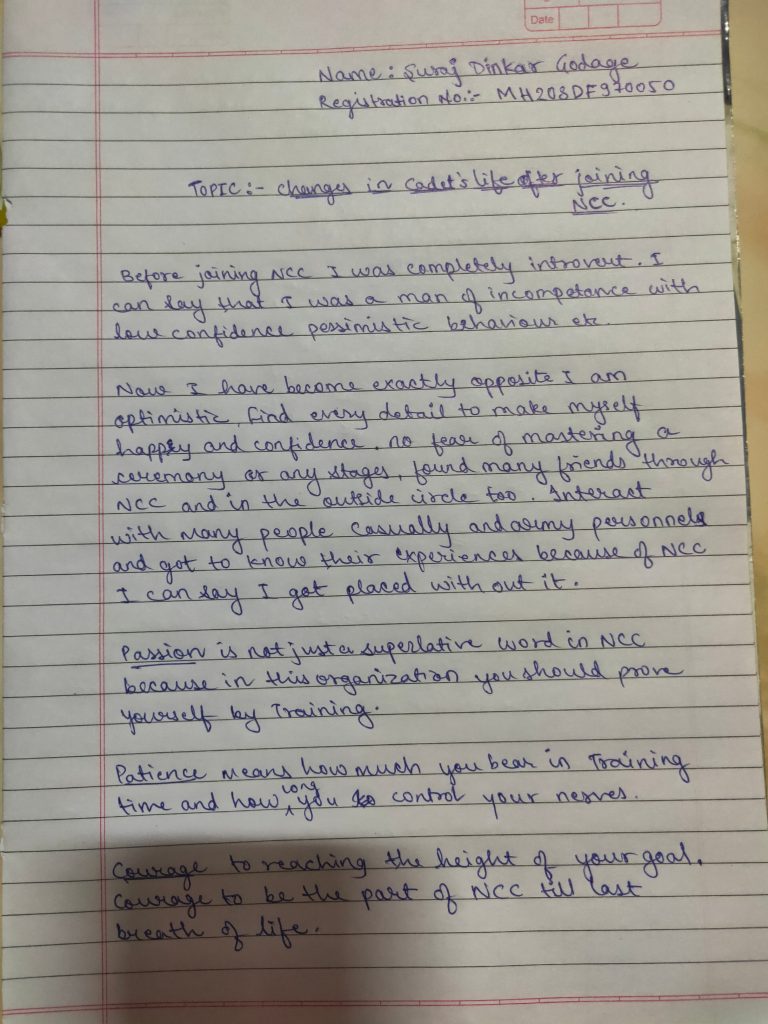 Date
Name: Suraj Dinkar Godage
Registration No.:- MH20SDF970050
TOPIC:- changes in Cadet's life after joining
NCC.
Before joining NCC I was completely introvert. I
can say that I was a man of incompetance with
low confidence pessimistic behaviour etc.
Now I have become exactly opposite I am
optimistic, find every detail to make myself
happy and confidence. no fear of mastering a
ceremony or any stages, found many friends through
NCC and in the outside circle too. Interact
with many people casually and army personnels
and got to know their experiences because of NCC
I can say I got placed with out it.
Passion is not just a superlative word in NCC
because in this organization you should prove
yourself by Training.
Patience means how much you bear in Training
time and how long you control your nerves.
Courage to reaching the height of your goal.
Courage to be the part of NCC till last
breath of life.